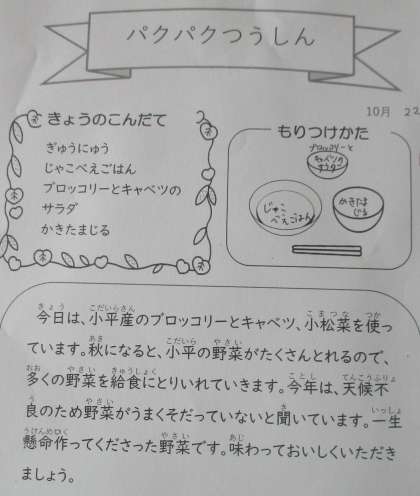 パクパクつうしん
10月 22
きょうのこんだて
ぎゅうにゅう
じゃこべえごはん
ブロッコリーとキャベツの
サラダ
かきたまじる
もりつけかた
ブロッコリーと
キャベツの
サラダ
じゃこ
べえごはん
かきたま
じる
今日は、小平産のブロッコリーとキャベツ、小松菜を使っ
ています。秋になると、小平の野菜がたくさんとれるので、
多くの野菜を給食にとりいれていきます。今年は、天候不
良のため野菜がうまくそだっていないと聞いています。一生
懸命作ってくださった野菜です。味わっておいしくいただき
ましょう。